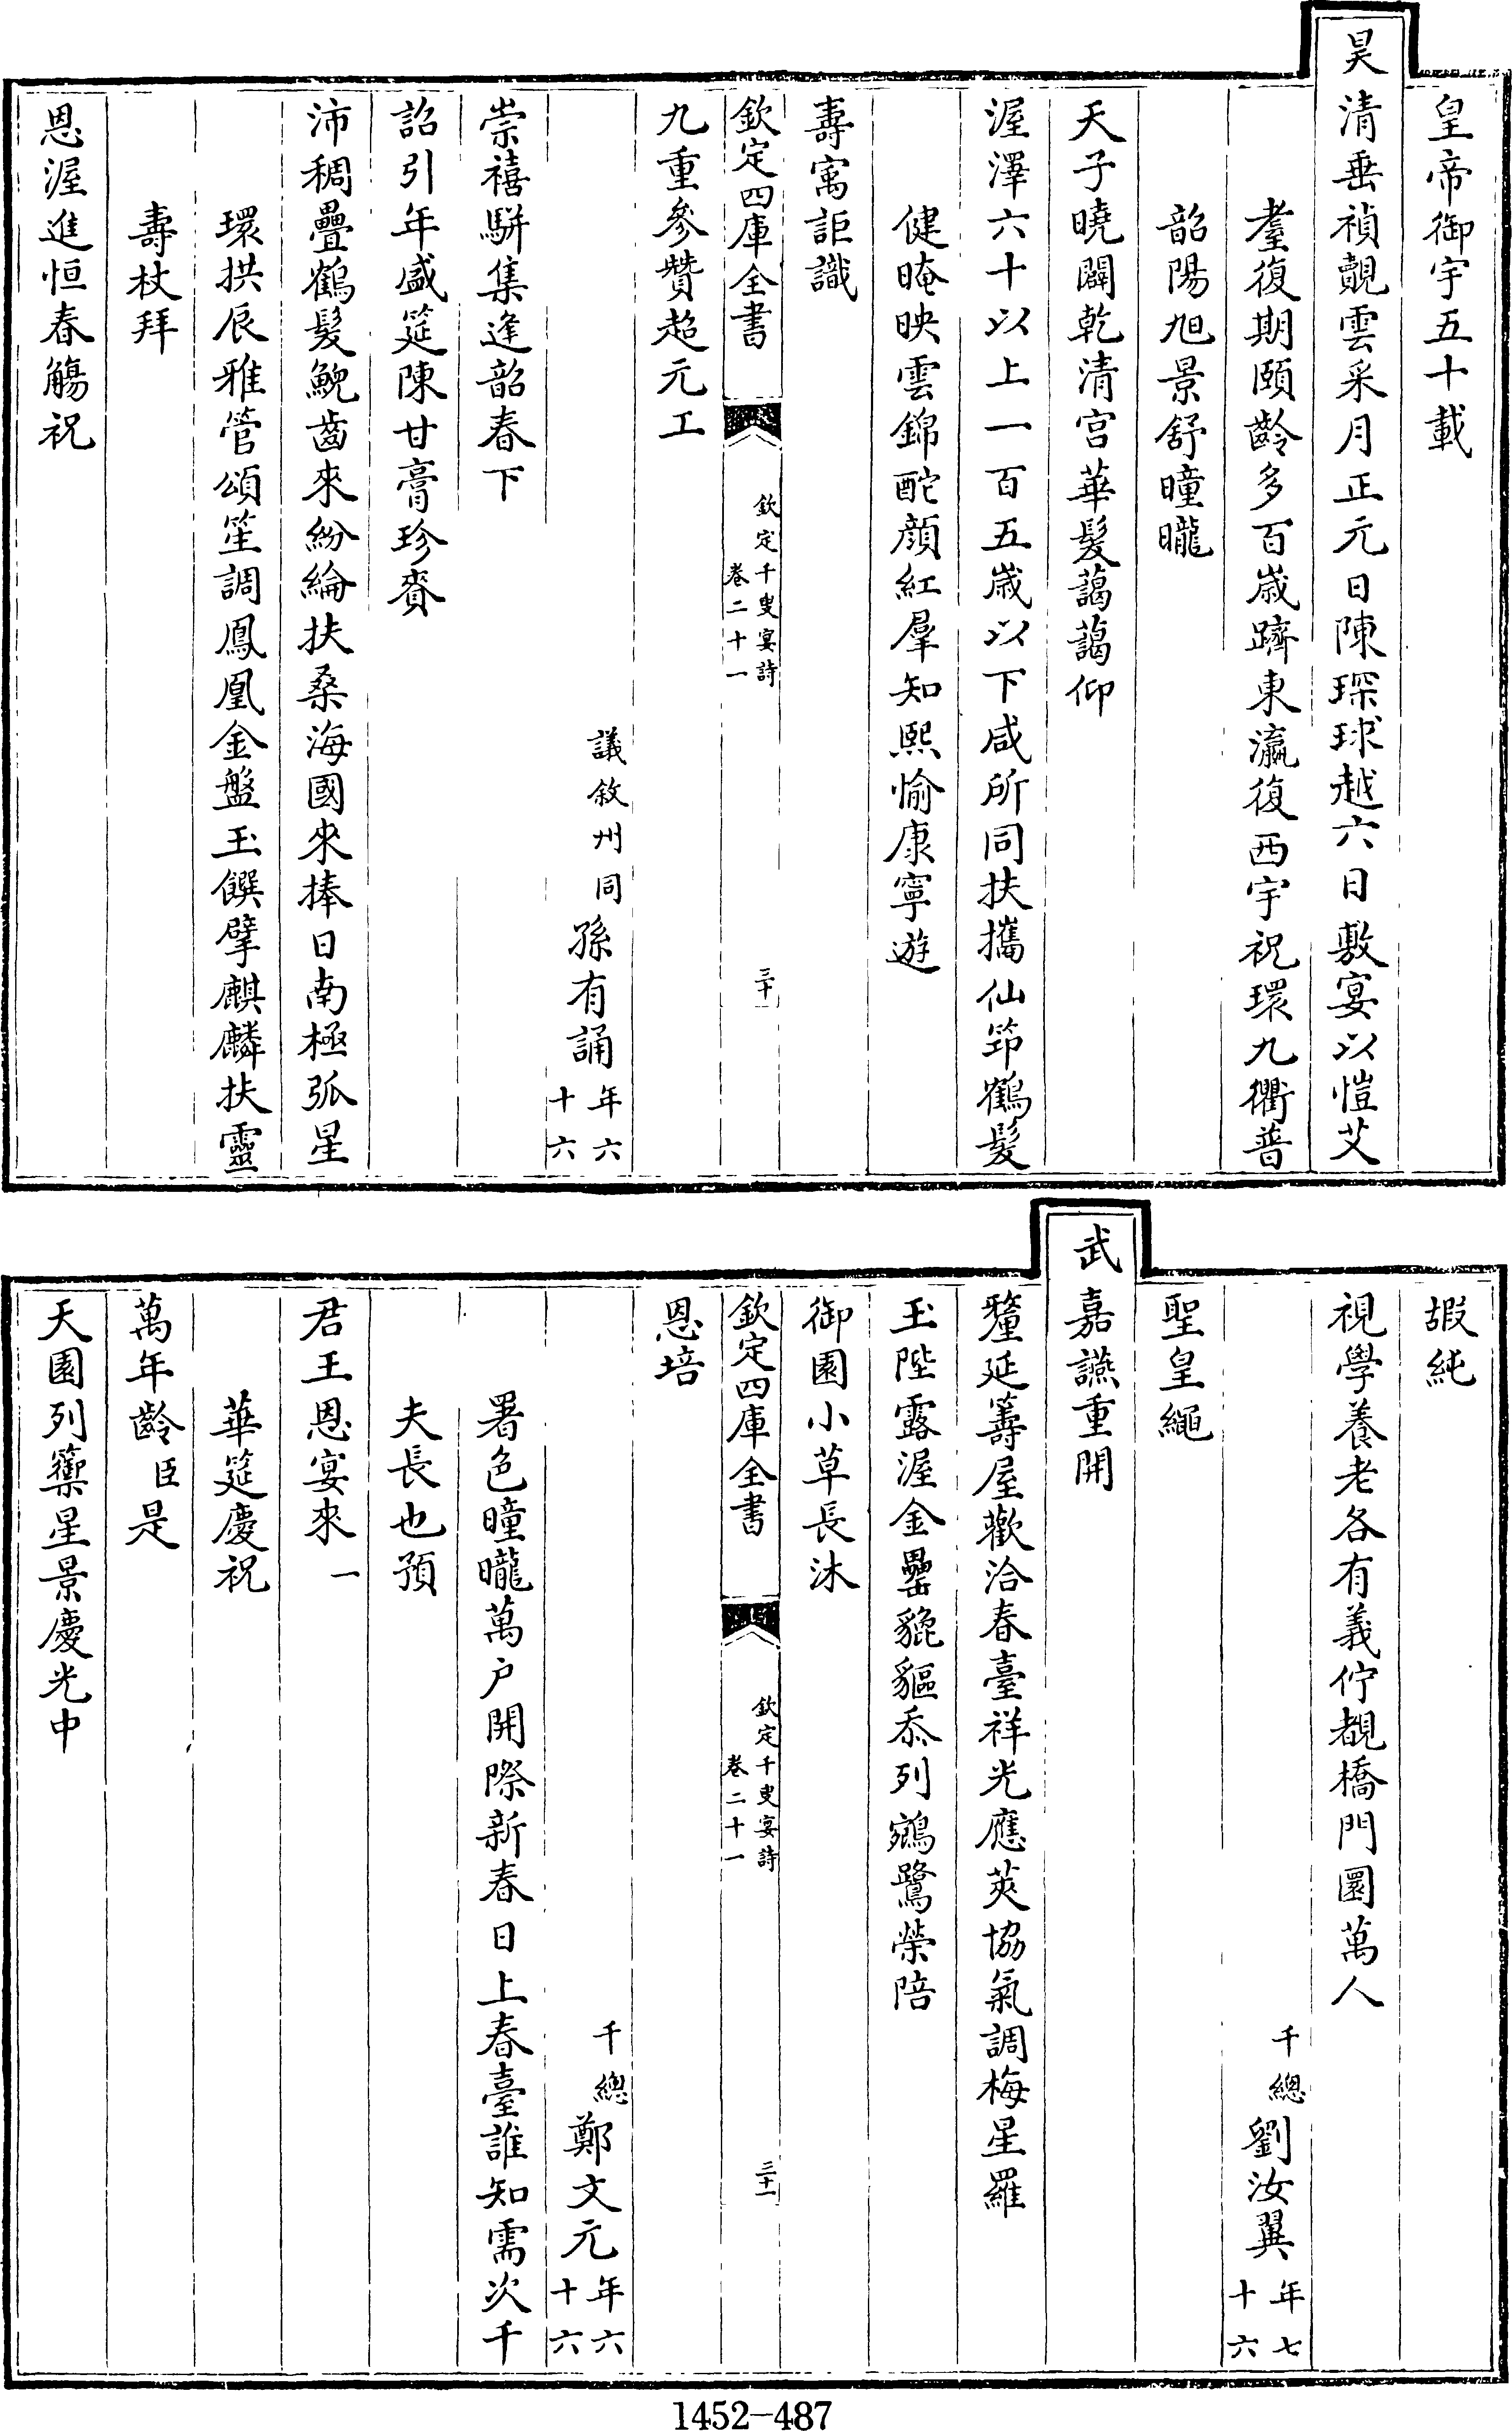 皇帝御宇五十載
昊清垂禎覿雲采月正元日陳琛球越六日敷宴以愷艾
耋復期頤齡多百歲躋東瀛復西宇祝環九衢普
韶陽旭景舒曈曨
天子曉闢乾清宮華髮藹藹仰
渥澤六十以上一百五歲以下咸所同扶攜仙筇鶴髮
健晻映雲錦酡顔紅羣知熙愉康寧遊
壽寓詎識
欽定四庫全書
欽定千叟宴詩
卷二十一
三十
九重參贊超元工
議敘州同孫有誦年六十六
崇禧駢集逢韶春下
詔引年盛筵陳甘膏珍賚
沛稠疊鶴髮鯢齒來紛綸扶桑海國來捧日南極弧星
環拱辰雅管頌笙調鳳凰金盤玉饌擘麒麟扶靈
壽杖拜
恩渥進恒春觴祝
嘏純
視學養老各有義佇覩橋門圜萬人
千總劉汝翼年七十六
聖皇繩
武嘉讌重開
釐延籌屋歡洽春臺祥光應莢協氣調梅星羅
玉陛露渥金罍貔貙忝列鵷鷺榮陪
御園小草長沐
欽定四庫全書
欽定千叟宴詩
卷二十一
三十一
恩培
千總鄭文元年六十六
署色曈曨萬户開際新春日上春臺誰知需次千
夫長也預
君王恩宴來一
華筵慶祝
萬年齡臣是
天園列藥星景慶光中
1452-487